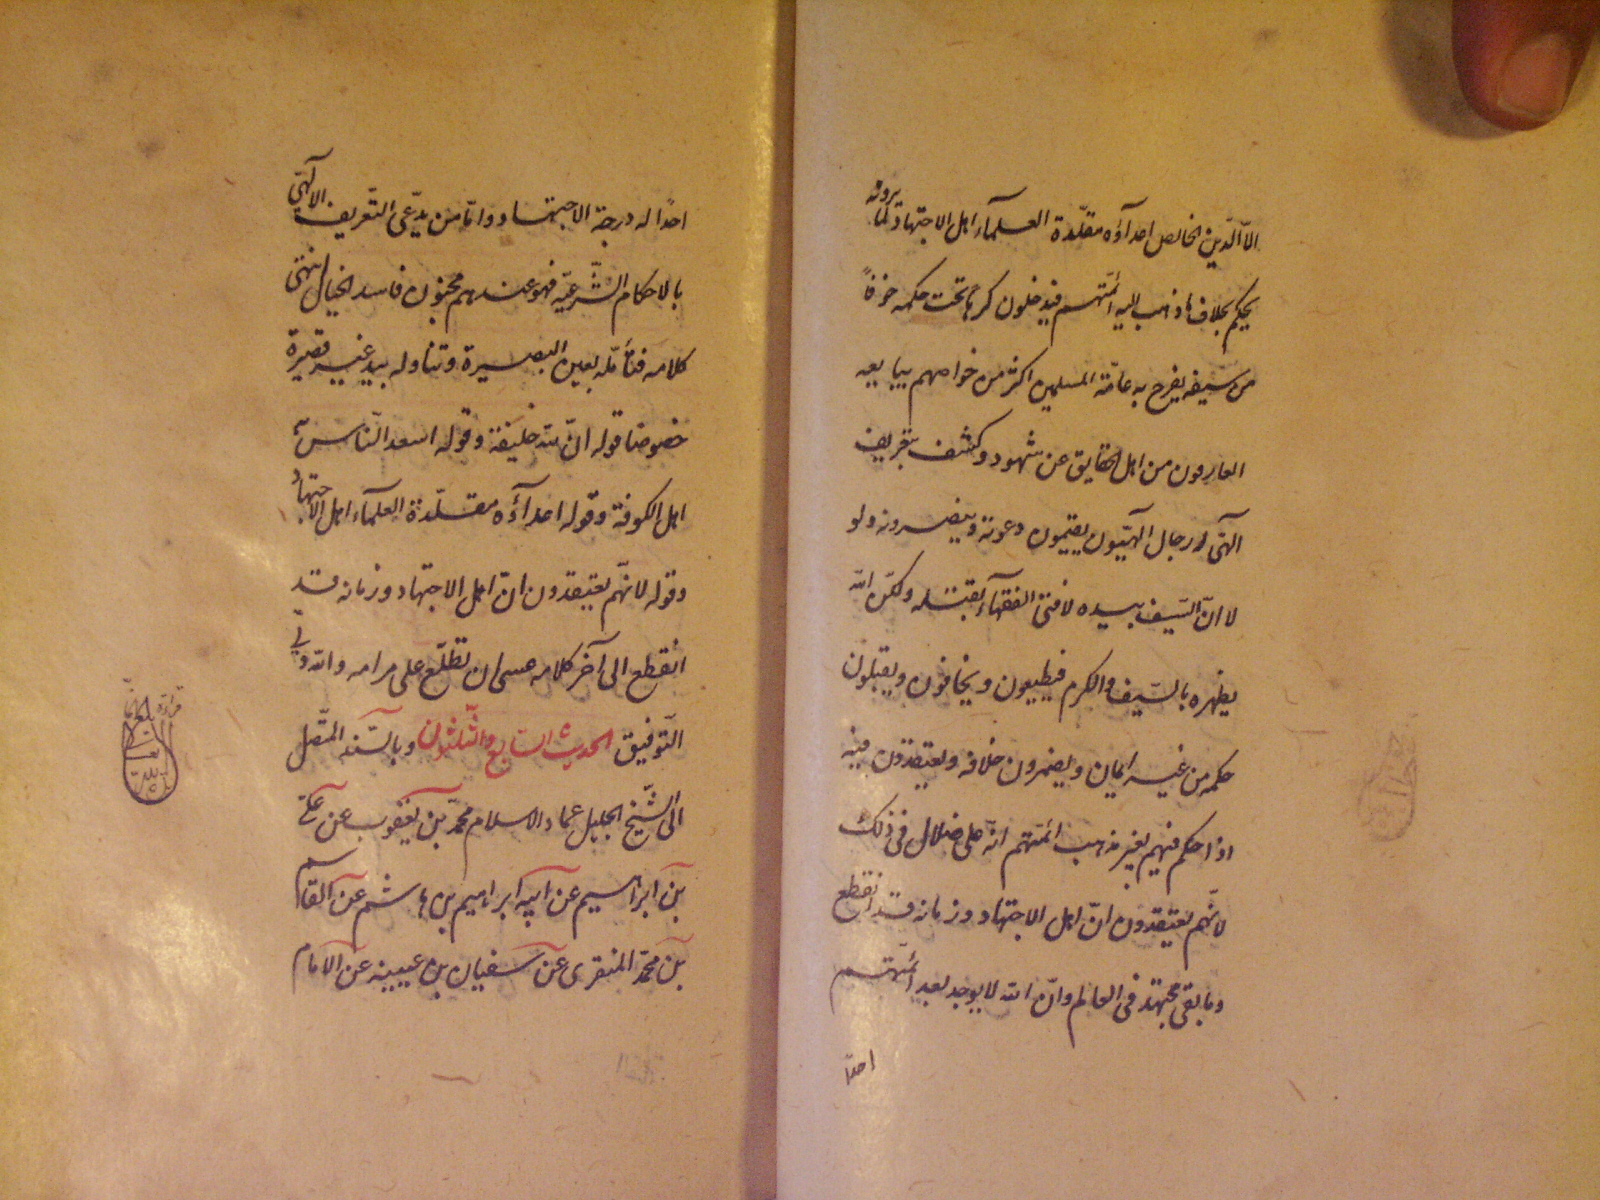 الا الدّين الخالص اعدآؤه مقلّدة العلمآء اهل الاجتهاد لما يرونه
يحكم بخلاف ما ذهب اليه ائمّتهم فيدخلون كرهًا تحت حكمه خوفًا
من سيفه يفرح به عامّة المسلمين اكثر من خواصهم يبايعه
العارفون من اهل الحقايق عن شهود وكشف بتعريف
الهىّ له رجال الهيّون يقيمون دعوته وينصرونه ولو
لا انّ السّيف بيده لافتى الفقهآء بقتله ولكن اللّه
يظهره بالسّيف والكرم فيطيعون ويخافون ويقبلون
حكمه من غير ايمان ويضمرون خلافه ويعتقدون فيه
اذا حكم فيهم بغير مذهب ائمّتهم انّه على ضلال فى ذلك
لانّهم يعتقدون انّ اهل الاجتهاد وزمانه قد انقطع
وما بقى مجتهد فى العالم وانّ اللّه لا يوجد بعد ائمّتهم
احدًا
احدًا له درجة الاجتهاد وامّا من يدّعى التّعريف الالٓهىّ
بالاحكام الشّرعيّه فهو عندهم مجنون فاسد الخيال انتهى
كلامه فتأمّله بعين البصيرة وتناوله بيد غير قصيرة
خصوصا قوله انّ للّه خليفة وقوله اسعد النّاس به
اهل الكوفة وقوله اعدآؤه مقلّدة العلمآء اهل الاجتهاد
وقوله لانّهم يعتقدون انّ اهل الاجتهاد وزمانه قد
انقطع الى آخر كلامه عسى ان تطّلع على مرامه واللّه ولىّ
التّوفيق الحديث السّابع والثّلثون وبالسّند المتّصل
الى الشّيخ الجليل عماد الاسلام محمّد بن يعقوب عن علىّ
بن ابراهيم عن ابيه ابراهيم بن هاشم عن القاسم
بن محمّد المنقرى عن سفيان بن عيينه عن الامام